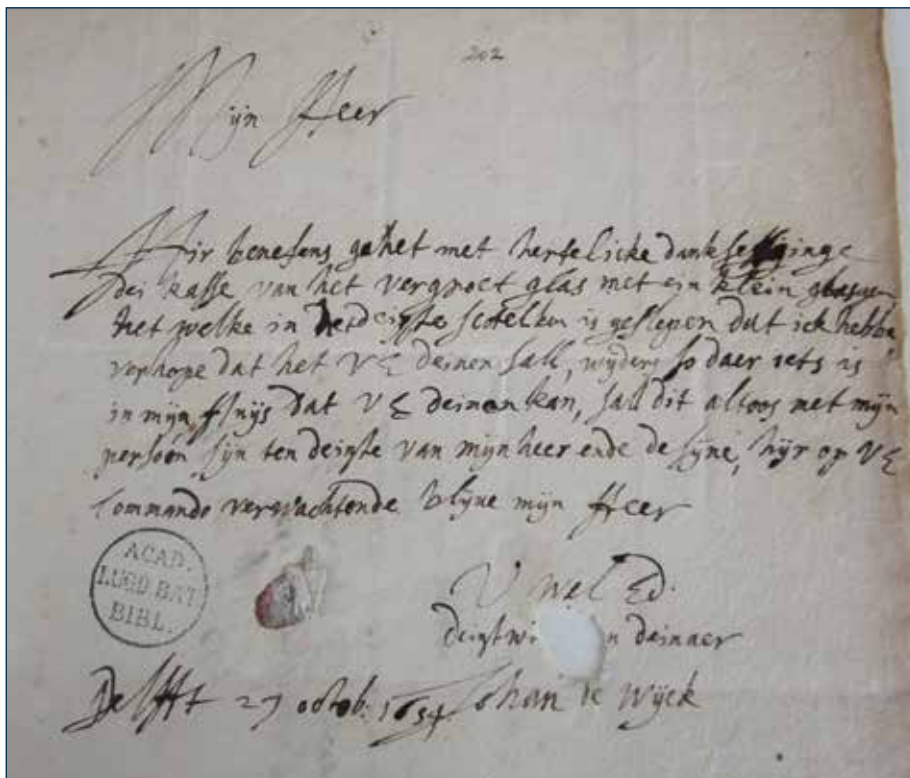 202
Mijn Heer
Hir benefens gehet met hertelicke dankseginge
dei kasse van het vergroet glas met ein klein glasgen
het welke in det deipste scotelken is geslepen dat ick hebbe,
verhope dat het VE deinen sall, wijders so daer iets is
in mijn Huijs dat VE deinen kan, sall dit altoos met mijn
persoon sijn ten deinste van mijn heer ende de sijne, hijr op VE
Commando verwachtende blijve mijn Heer
V Wel Ed.
deinstwi n deinaer
Delfft 27 octob: 1654 Johan de Wijck
ACAD.
LUGD BAT
BIBL.